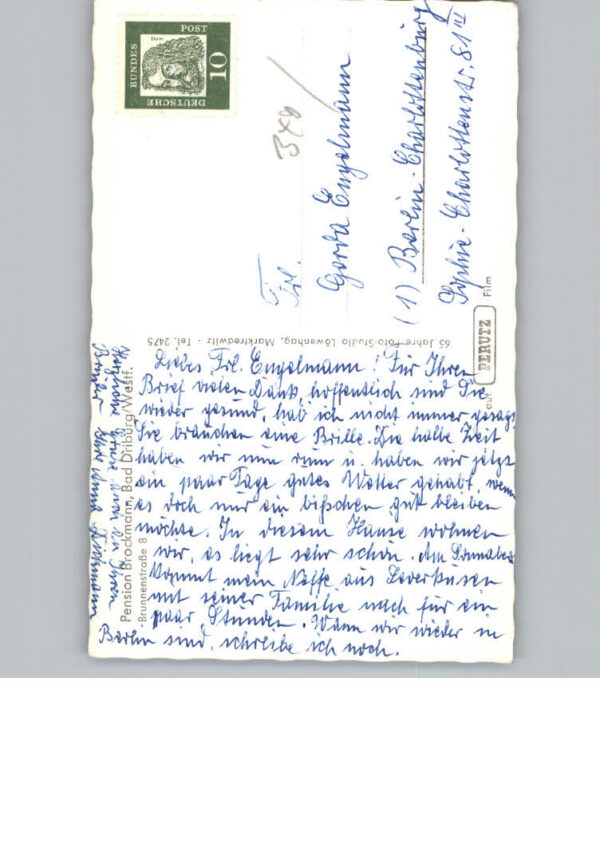 DEUTSCHE
BUNDES
POST
10
Dürer
348
Frl.
Gerda Engelmann
(1) Berlin-Charlottenburg
Sophie-Charlottenstr. 81 III
65 Jahre Foto-Studio Löwenhag, Marktredwitz · Tel. 2475
auf
PERUTZ
Film
Pension Brockmann, Bad Driburg/Westf.
Brunnenstraße 8
Liebes Frl. Engelmann! Für Ihren
Brief vielen Dank, hoffentlich sind Sie
wieder gesund, hab ich nicht immer gesagt
Sie brauchen eine Brille. Die halbe Zeit
haben wir nun rum u. haben wir jetzt
ein paar Tage gutes Wetter gehabt, wenn
es doch nur ein bißchen gut bleiben
möchte. In diesem Hause wohnen
wir, es liegt sehr schön. Am Sonnabend
kommt mein Neffe aus Leverkusen
mit seiner Familie nach für ein
paar Stunden. Wann wir wieder in
Berlin sind, schreibe ich noch.
Herzliche Grüße